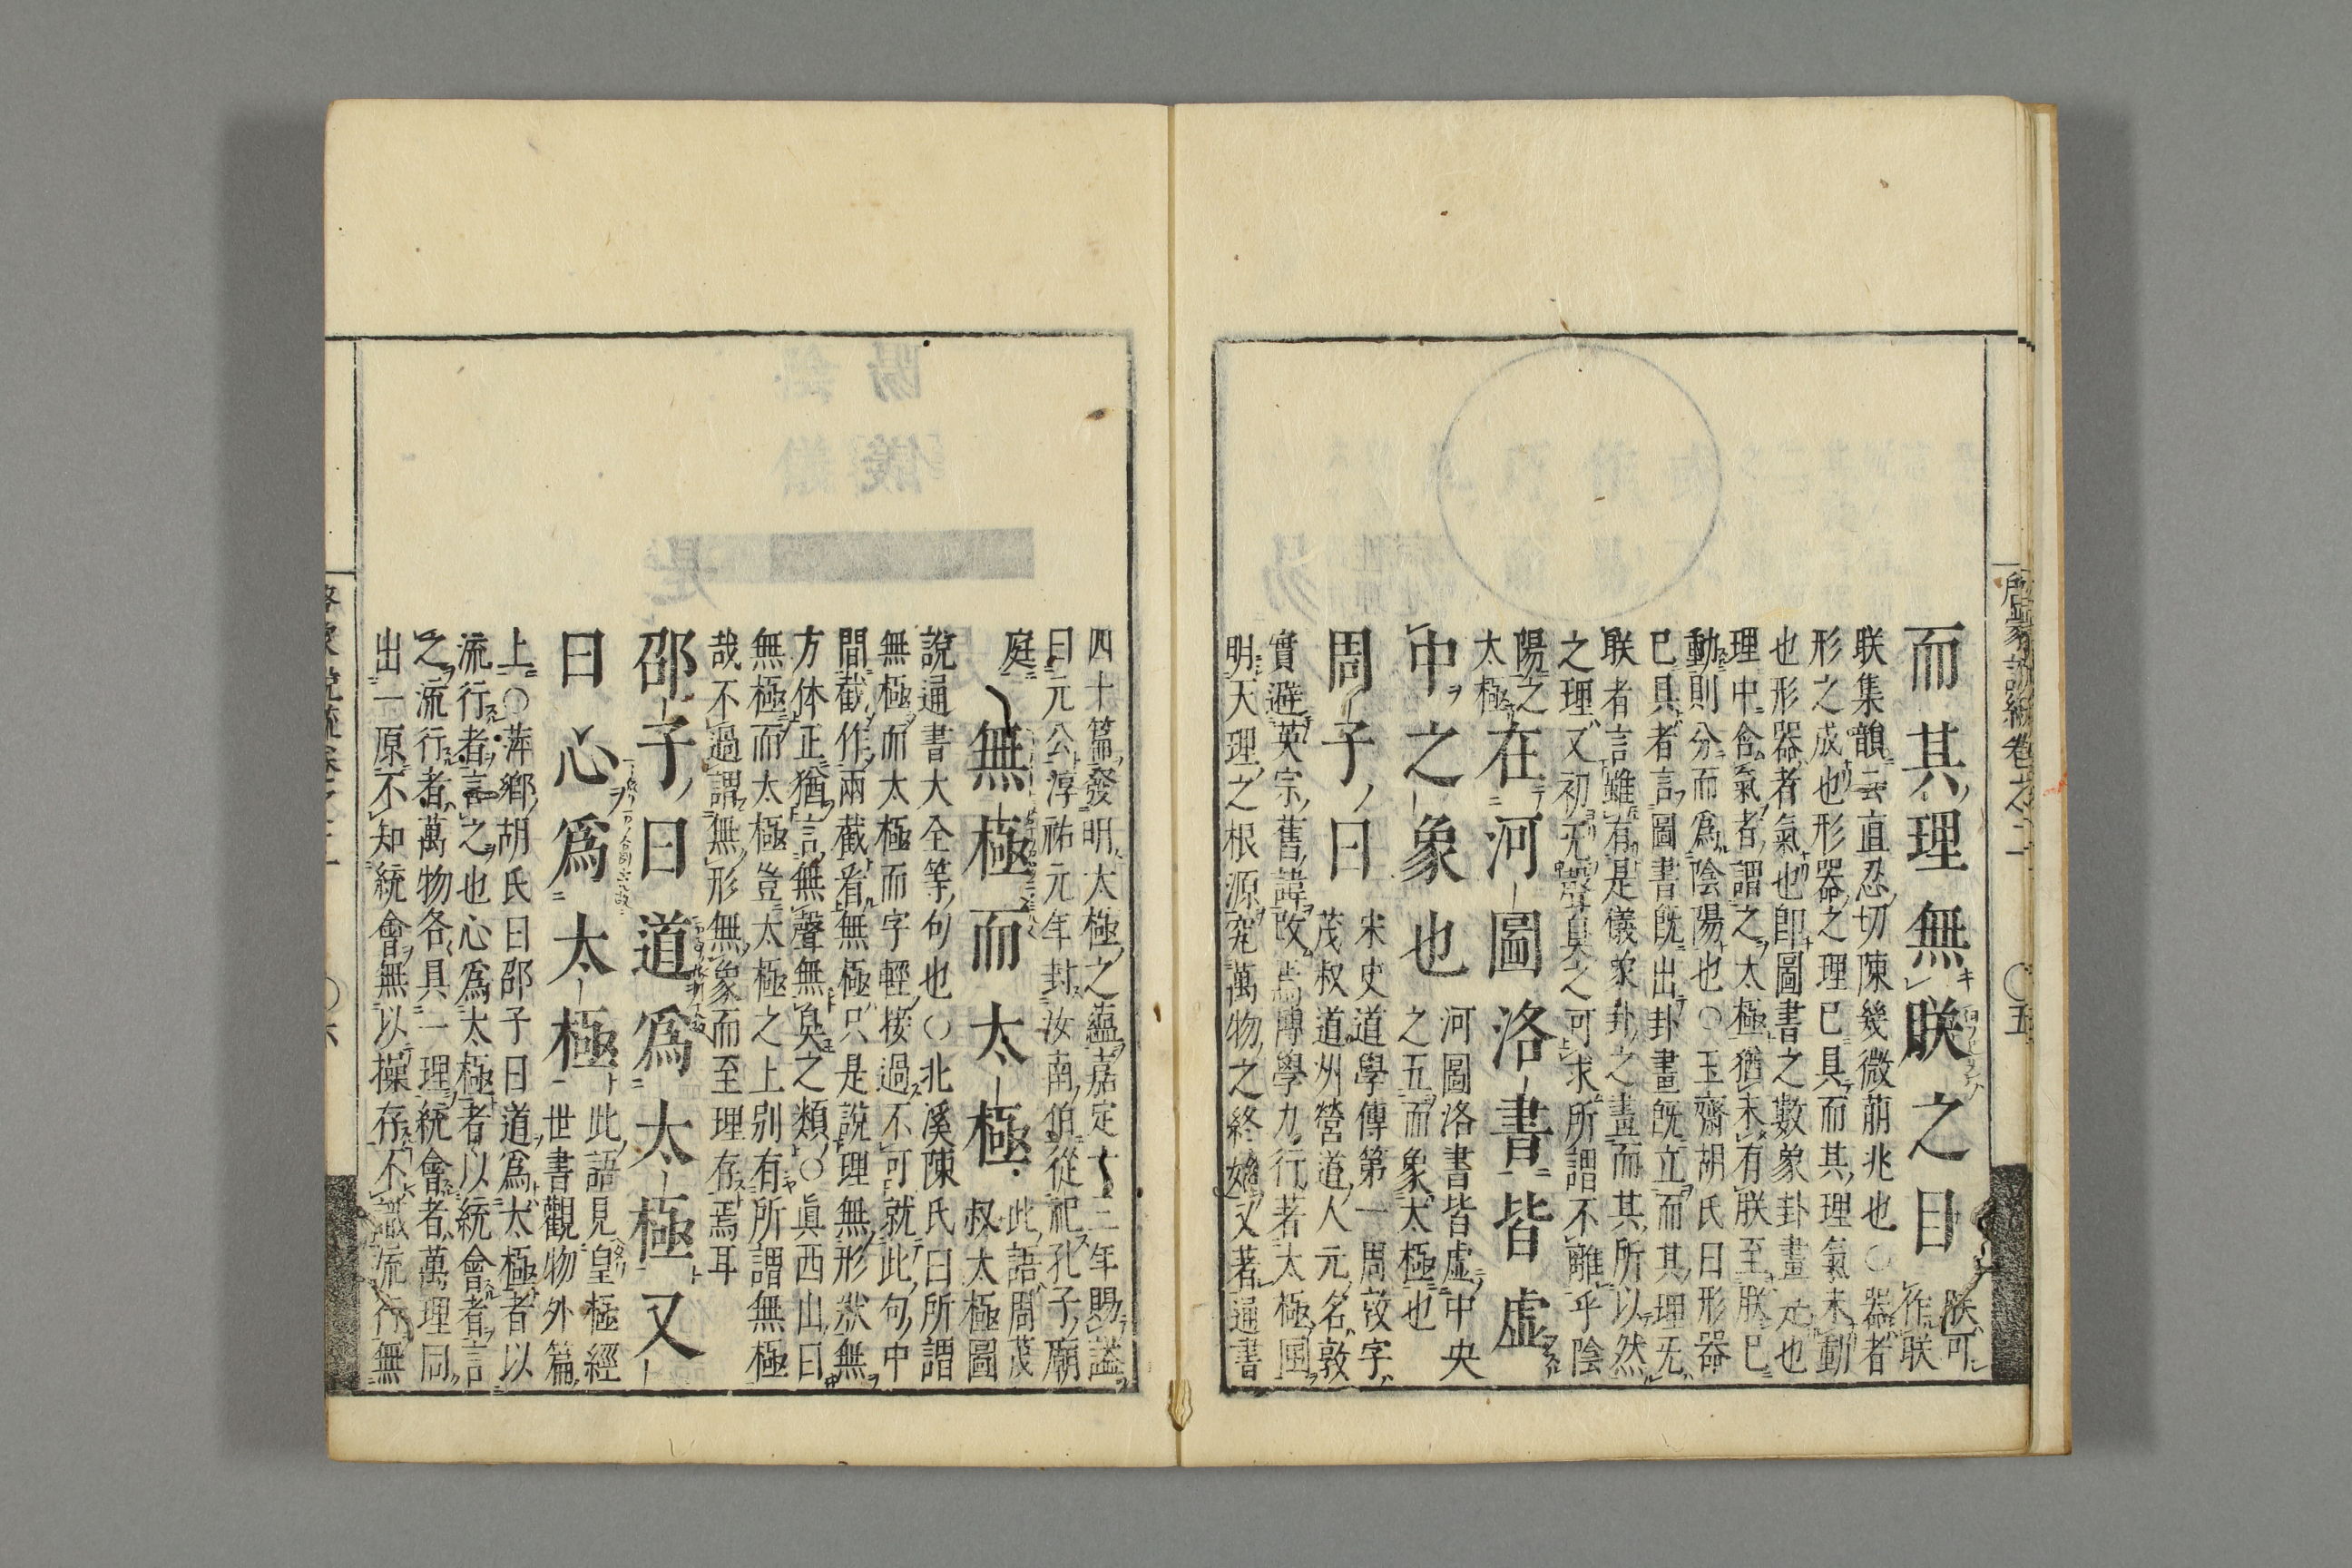 而其理無眹之目
眹可
作眹
眹集韻云直忍切陳幾微萠兆也○器者
形之成也形器之理已具而其理氣未動
也形器者氣也即圖書之數象卦畫是也
理中含氣者謂之太極猶未有眹至眹已
動則分而爲陰陽也○玉齋胡氏曰形器
已具者言圖書既出卦畫既立而其理无
眹者言雖有是儀象卦之畫而其所以然
之理又初无聲臭之可求所謂不離乎陰
陽之
太極
在河圖洛書皆虛
中之象也
河圖洛書皆虛中央
之五而象太極也
周子曰
宋史道學傳第一周敦字
茂叔道州營道人元名敦
實避英宗舊諱改焉博學力行著太極圖
明天理之根源究萬物之終始又著通書
四十篇發明太極之蘊嘉定十三年賜謚
曰元公淳祐元年封汝南伯從祀孔子廟
庭
無極而太極
此語周茂
叔太極圖
說通書大全等句也○北溪陳氏曰所謂
無極而太極而字輕接過不可就此句中
間截作兩截看無極只是說理無形狀無
方体正猶言無聲無臭之類○眞西山曰
無極而太極豈太極之上別有所謂無極
哉不過謂無形無象而至理存焉耳
邵子曰道爲太極又
曰心爲太極
此語見皇極經
世書觀物外篇
上○萍鄉胡氏曰邵子曰道爲太極者以
流行者言之也心爲太極者以統會者言
之流行者萬物各具一理統會者萬理同
出一原不知統會無以操存不識流行無